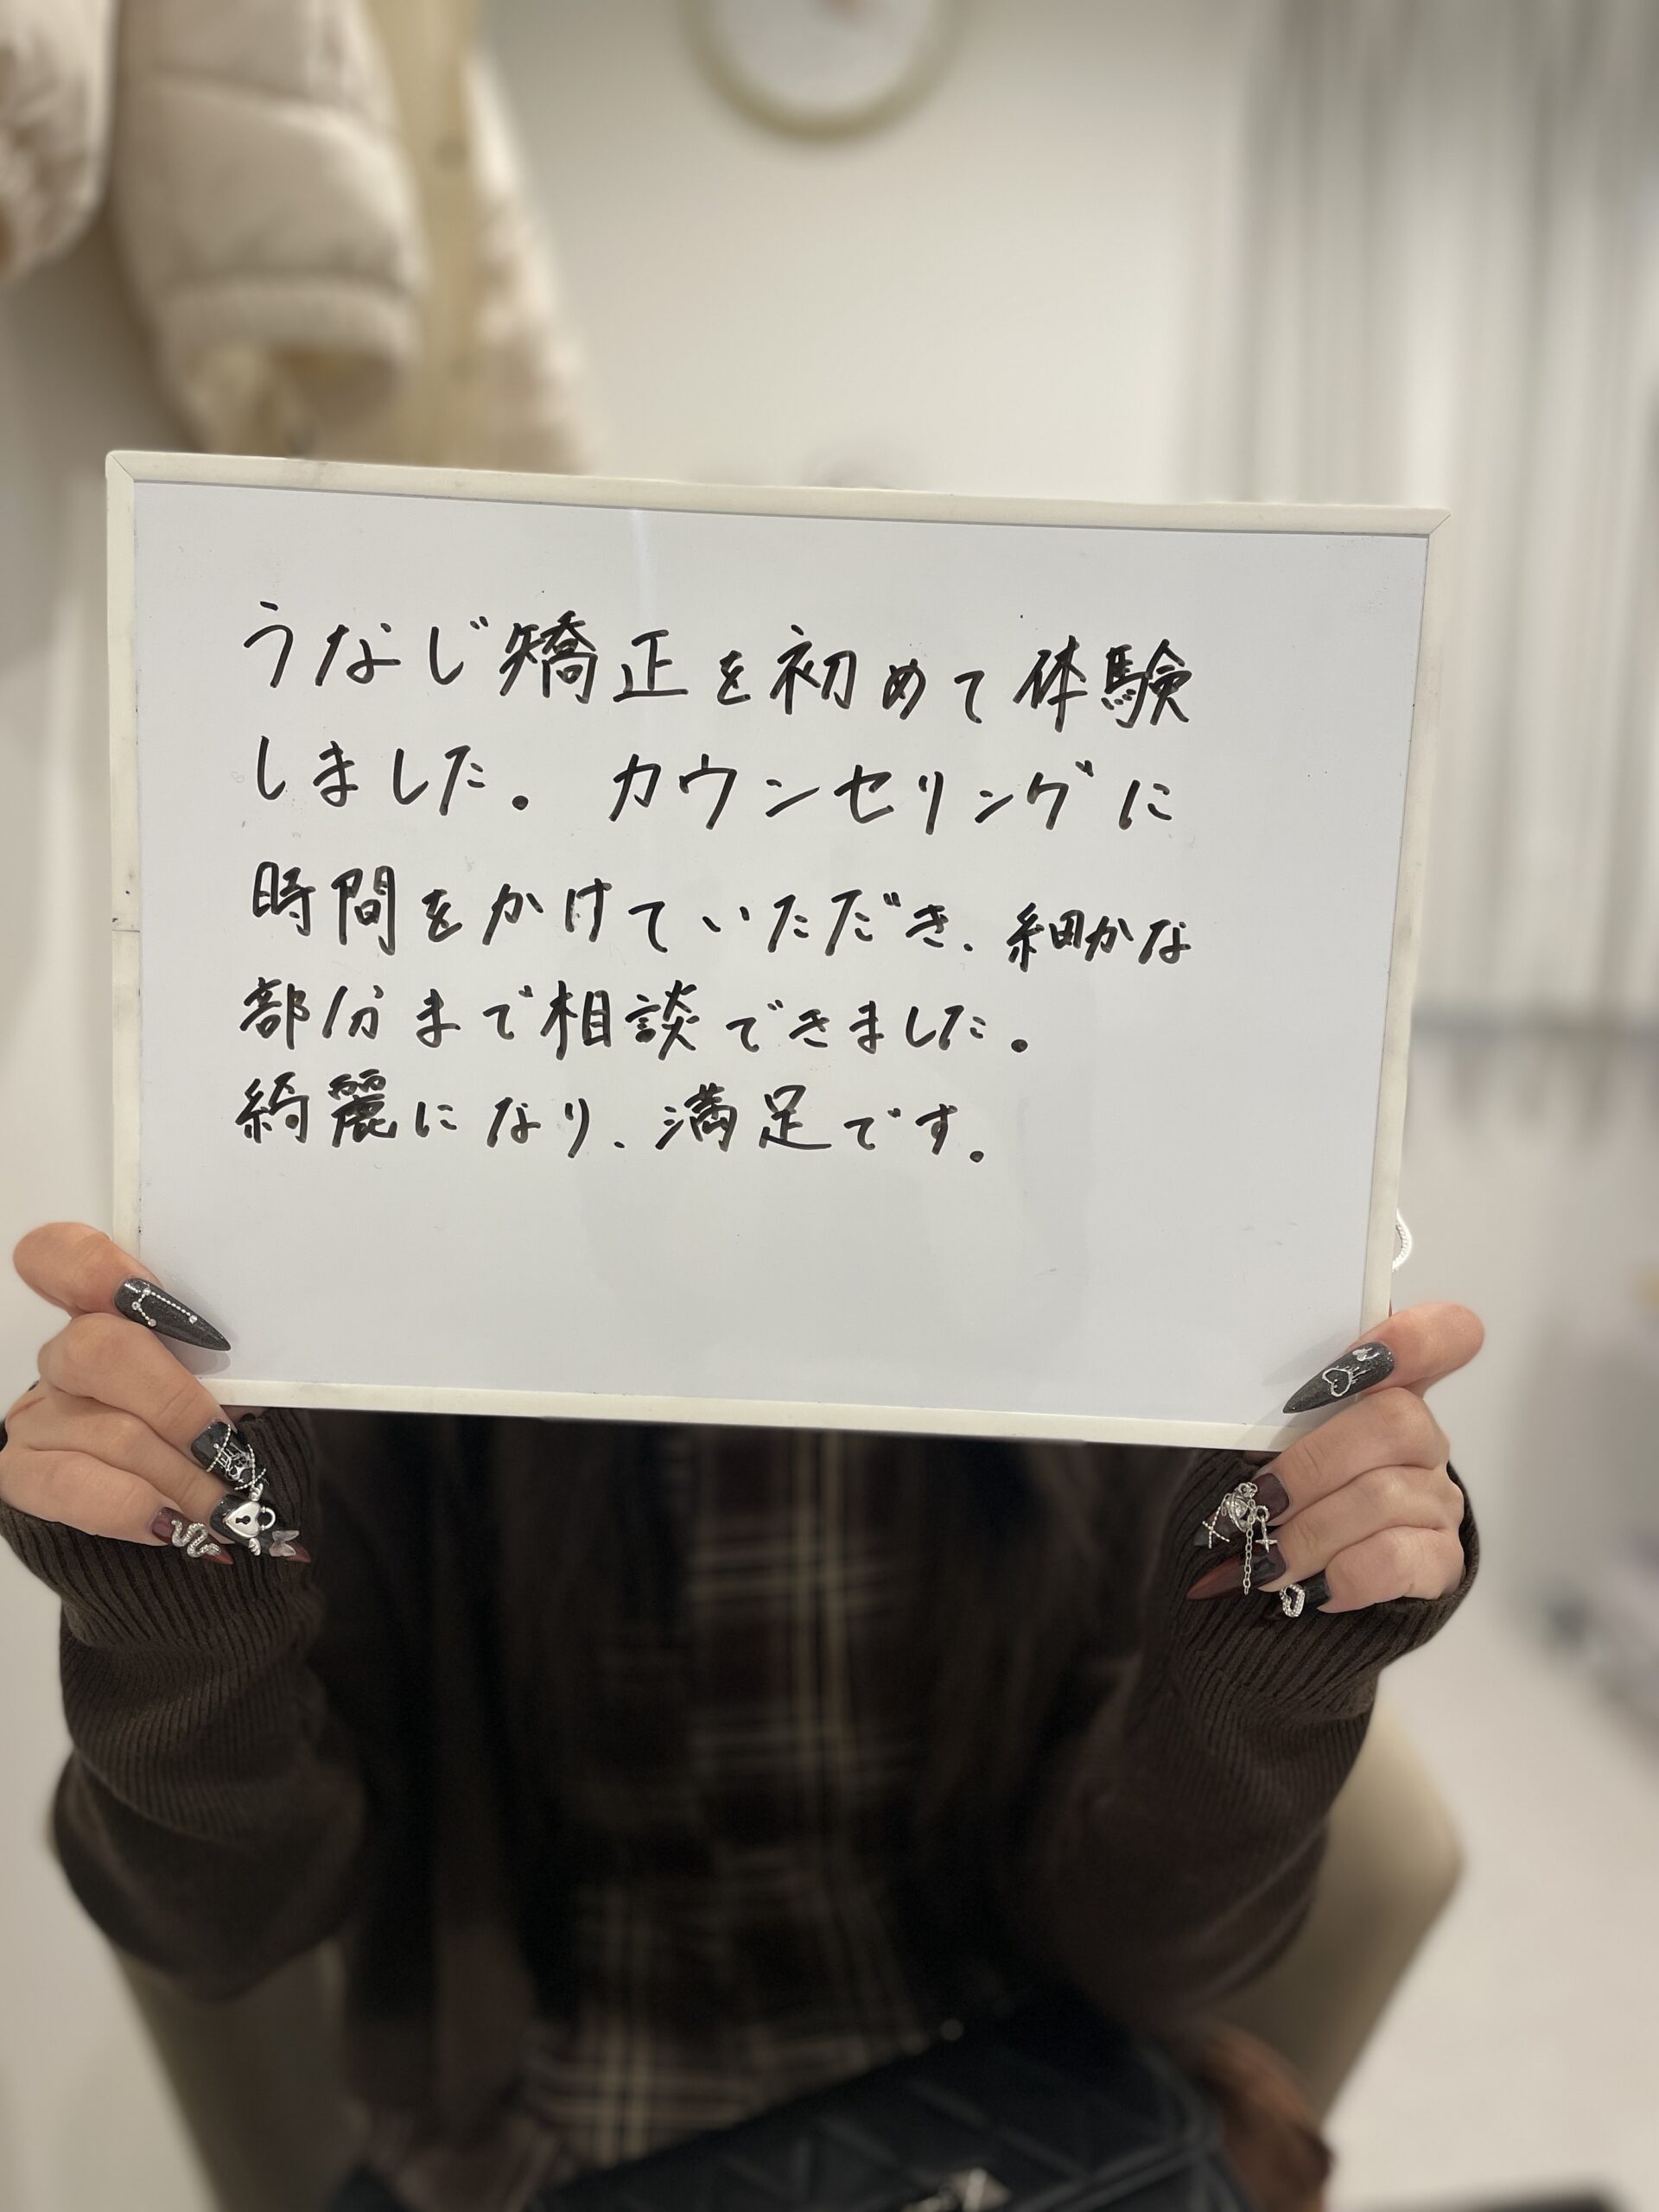 うなじ矯正を初めて体験
しました。カウンセリングに
時間をかけていただき、細かな
部分まで相談できました。
綺麗になり、満足です。